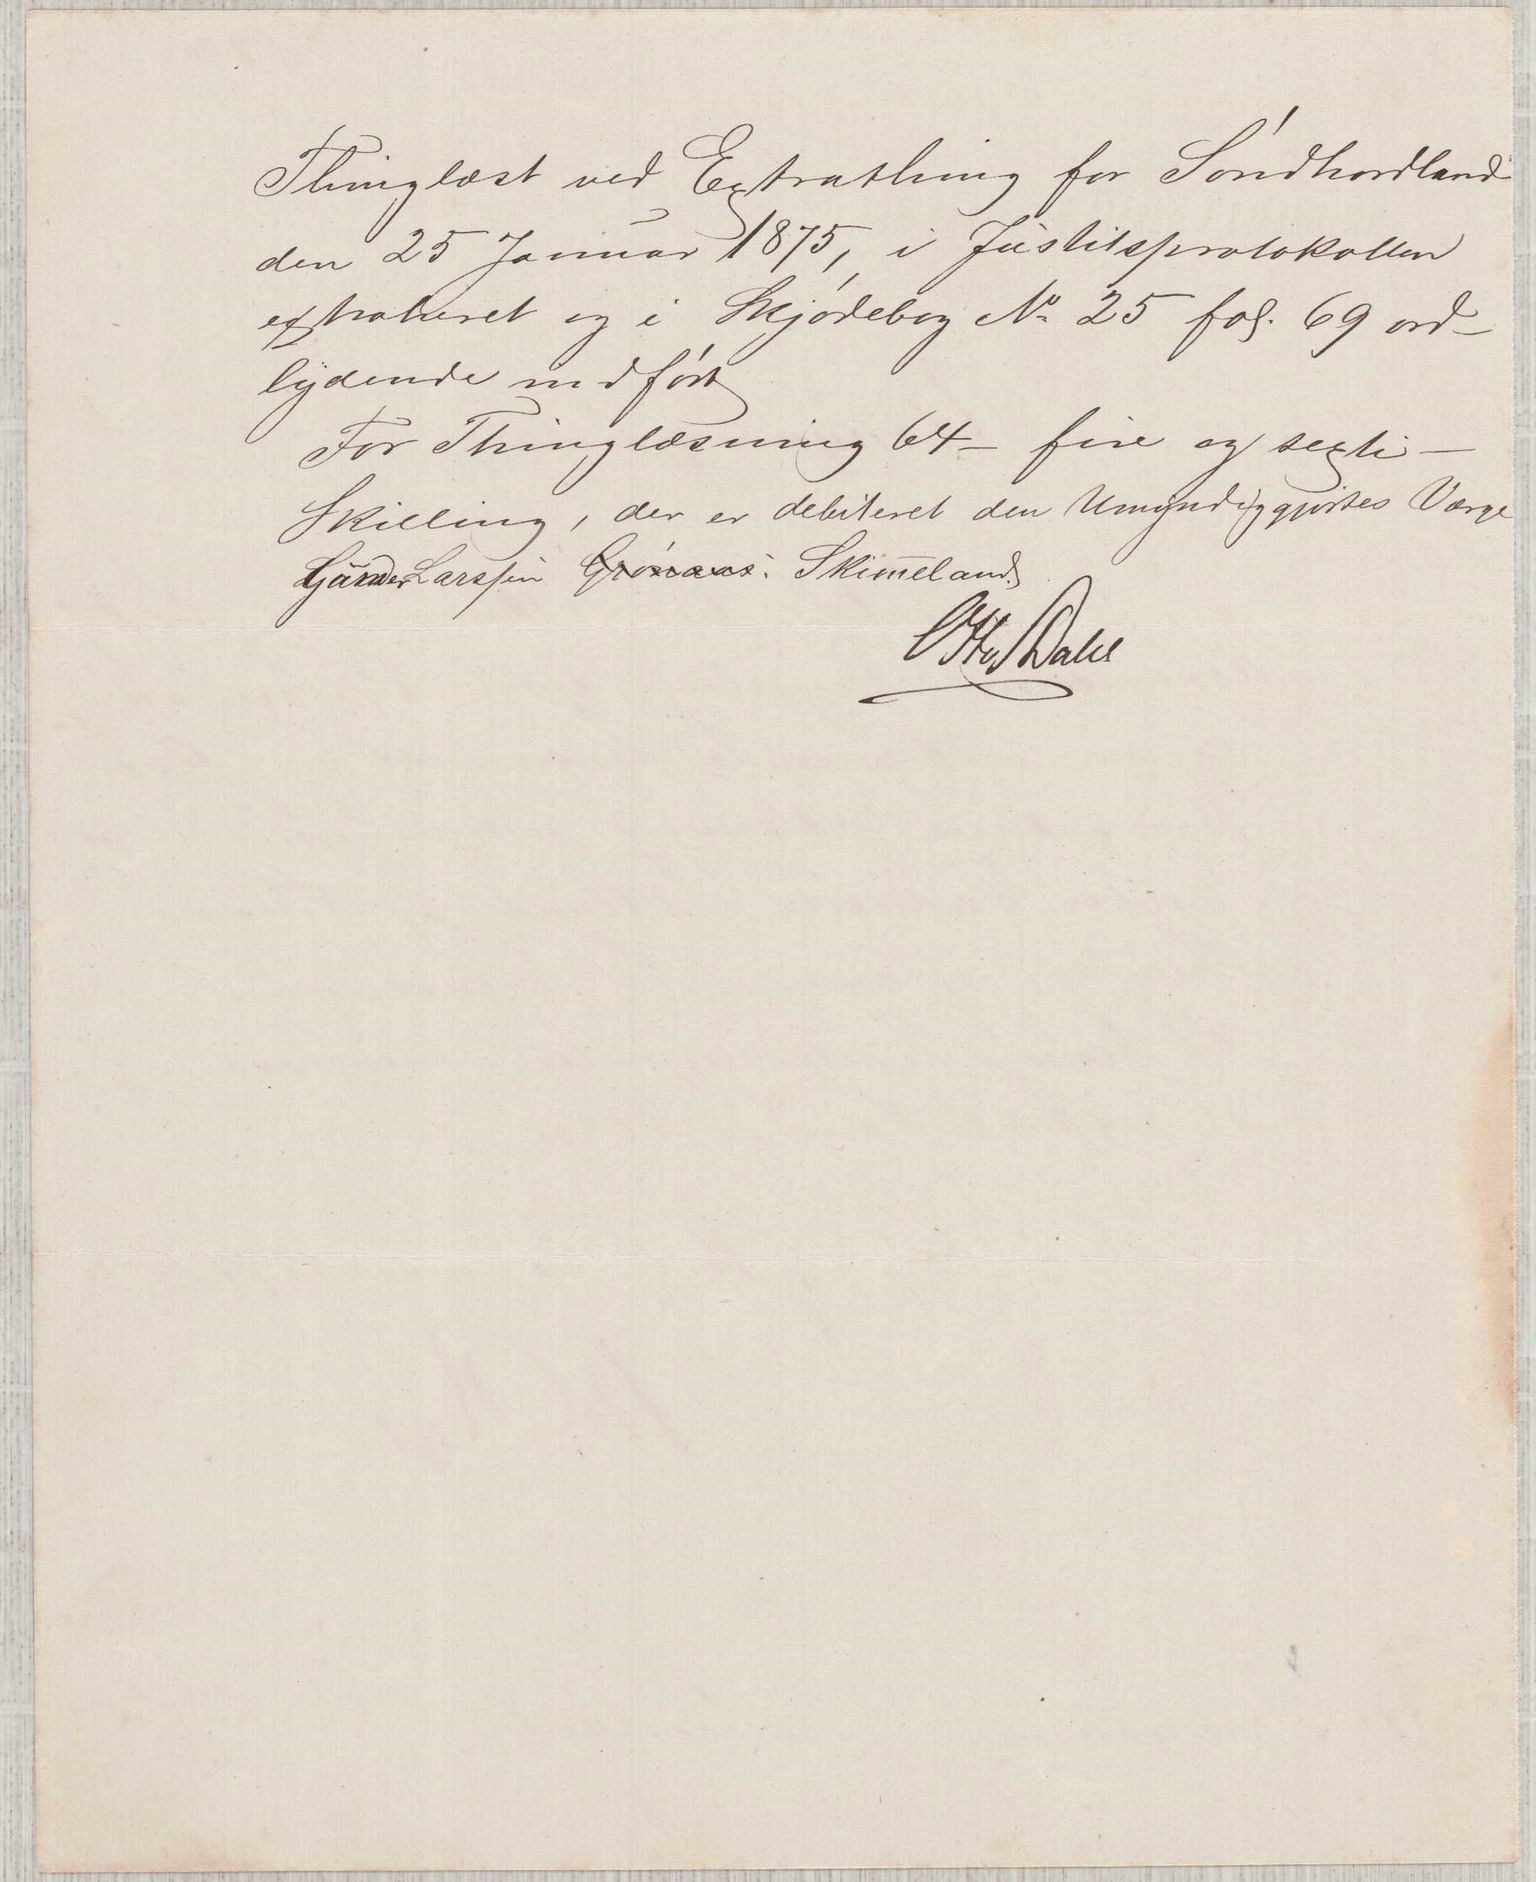 Thinglæst ved Extrathing for Söndhordland
den 25 Januar 1875, i Justitsprotokollen
extraheret og i Skjödebog No 25 fol. 69 ord-
lydende indført
For Thinglæsning 64 - fire og sexti -
Skilling, der er debiteret den Umyndiggjortes Værge
Larssen Grönaas. Skimeland.
Otto Dahl